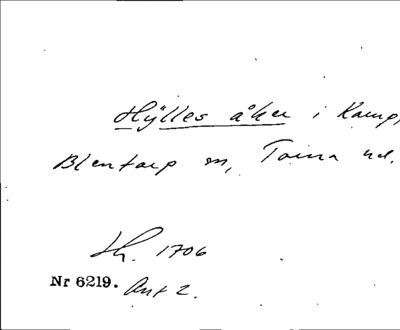 Hÿlles åker i Kamp,
Blentarp sn, Torna hd.
Lh. 1706
Nr 6219. Ant 2.